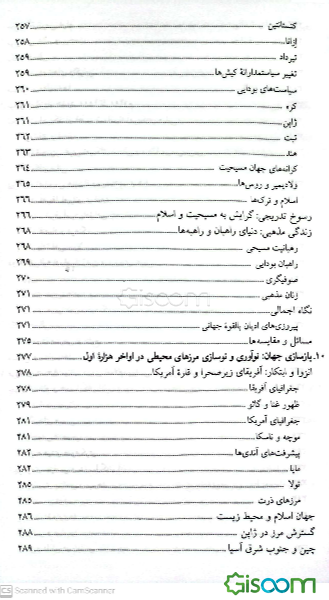 کنستانتین ۲۵۷
ازانا ۲۵۸
تیرداد ۲۵۹
تغییر سیاستمدارانهٔ کیش‌ها ۲۵۹
سیاست‌های بودایی ۲۶۰
کره ۲۶۱
ژاپن ۲۶۱
تبت ۲۶۲
هند ۲۶۳
کرانه‌های جهان مسیحیت ۲۶۴
ولادیمیر و روس‌ها ۲۶۵
اسلام و ترک‌ها ۲۶۶
رسوخ تدریجی: گرایش به مسیحیت و اسلام ۲۶۶
زندگی مذهبی: دنیای راهبان و راهبه‌ها ۲۶۸
رهبانیت مسیحی ۲۶۸
راهبان بودایی ۲۶۹
صوفیگری ۲۷۰
زنان مذهبی ۲۷۱
نگاه اجمالی ۲۷۱
پیروزی‌های ادیان بالقوهٔ جهانی ۲۷۱
مسائل و مقایسه‌ها ۲۷۵
۱۰. بازسازی جهان: نوآوری و نوسازی مرزهای محیطی در اواخر هزارهٔ اول ۲۷۷
انزوا و ابتکار: آفریقای زیرصحرا و قارهٔ آمریکا ۲۷۸
جغرافیای آفریقا ۲۷۸
ظهور غنا و گائو ۲۷۹
جغرافیای آمریکا ۲۸۱
موچه و ناسکا ۲۸۱
پیشرفت‌های آندی‌ها ۲۸۲
مایا ۲۸۲
تولا ۲۸۵
مرزهای ذرت ۲۸۵
جهان اسلام و محیط زیست ۲۸۶
گسترش مرز در ژاپن ۲۸۸
چین و جنوب شرقی آسیا ۲۸۹
Gisoom
CS Scanned with CamScanner
Gisoom